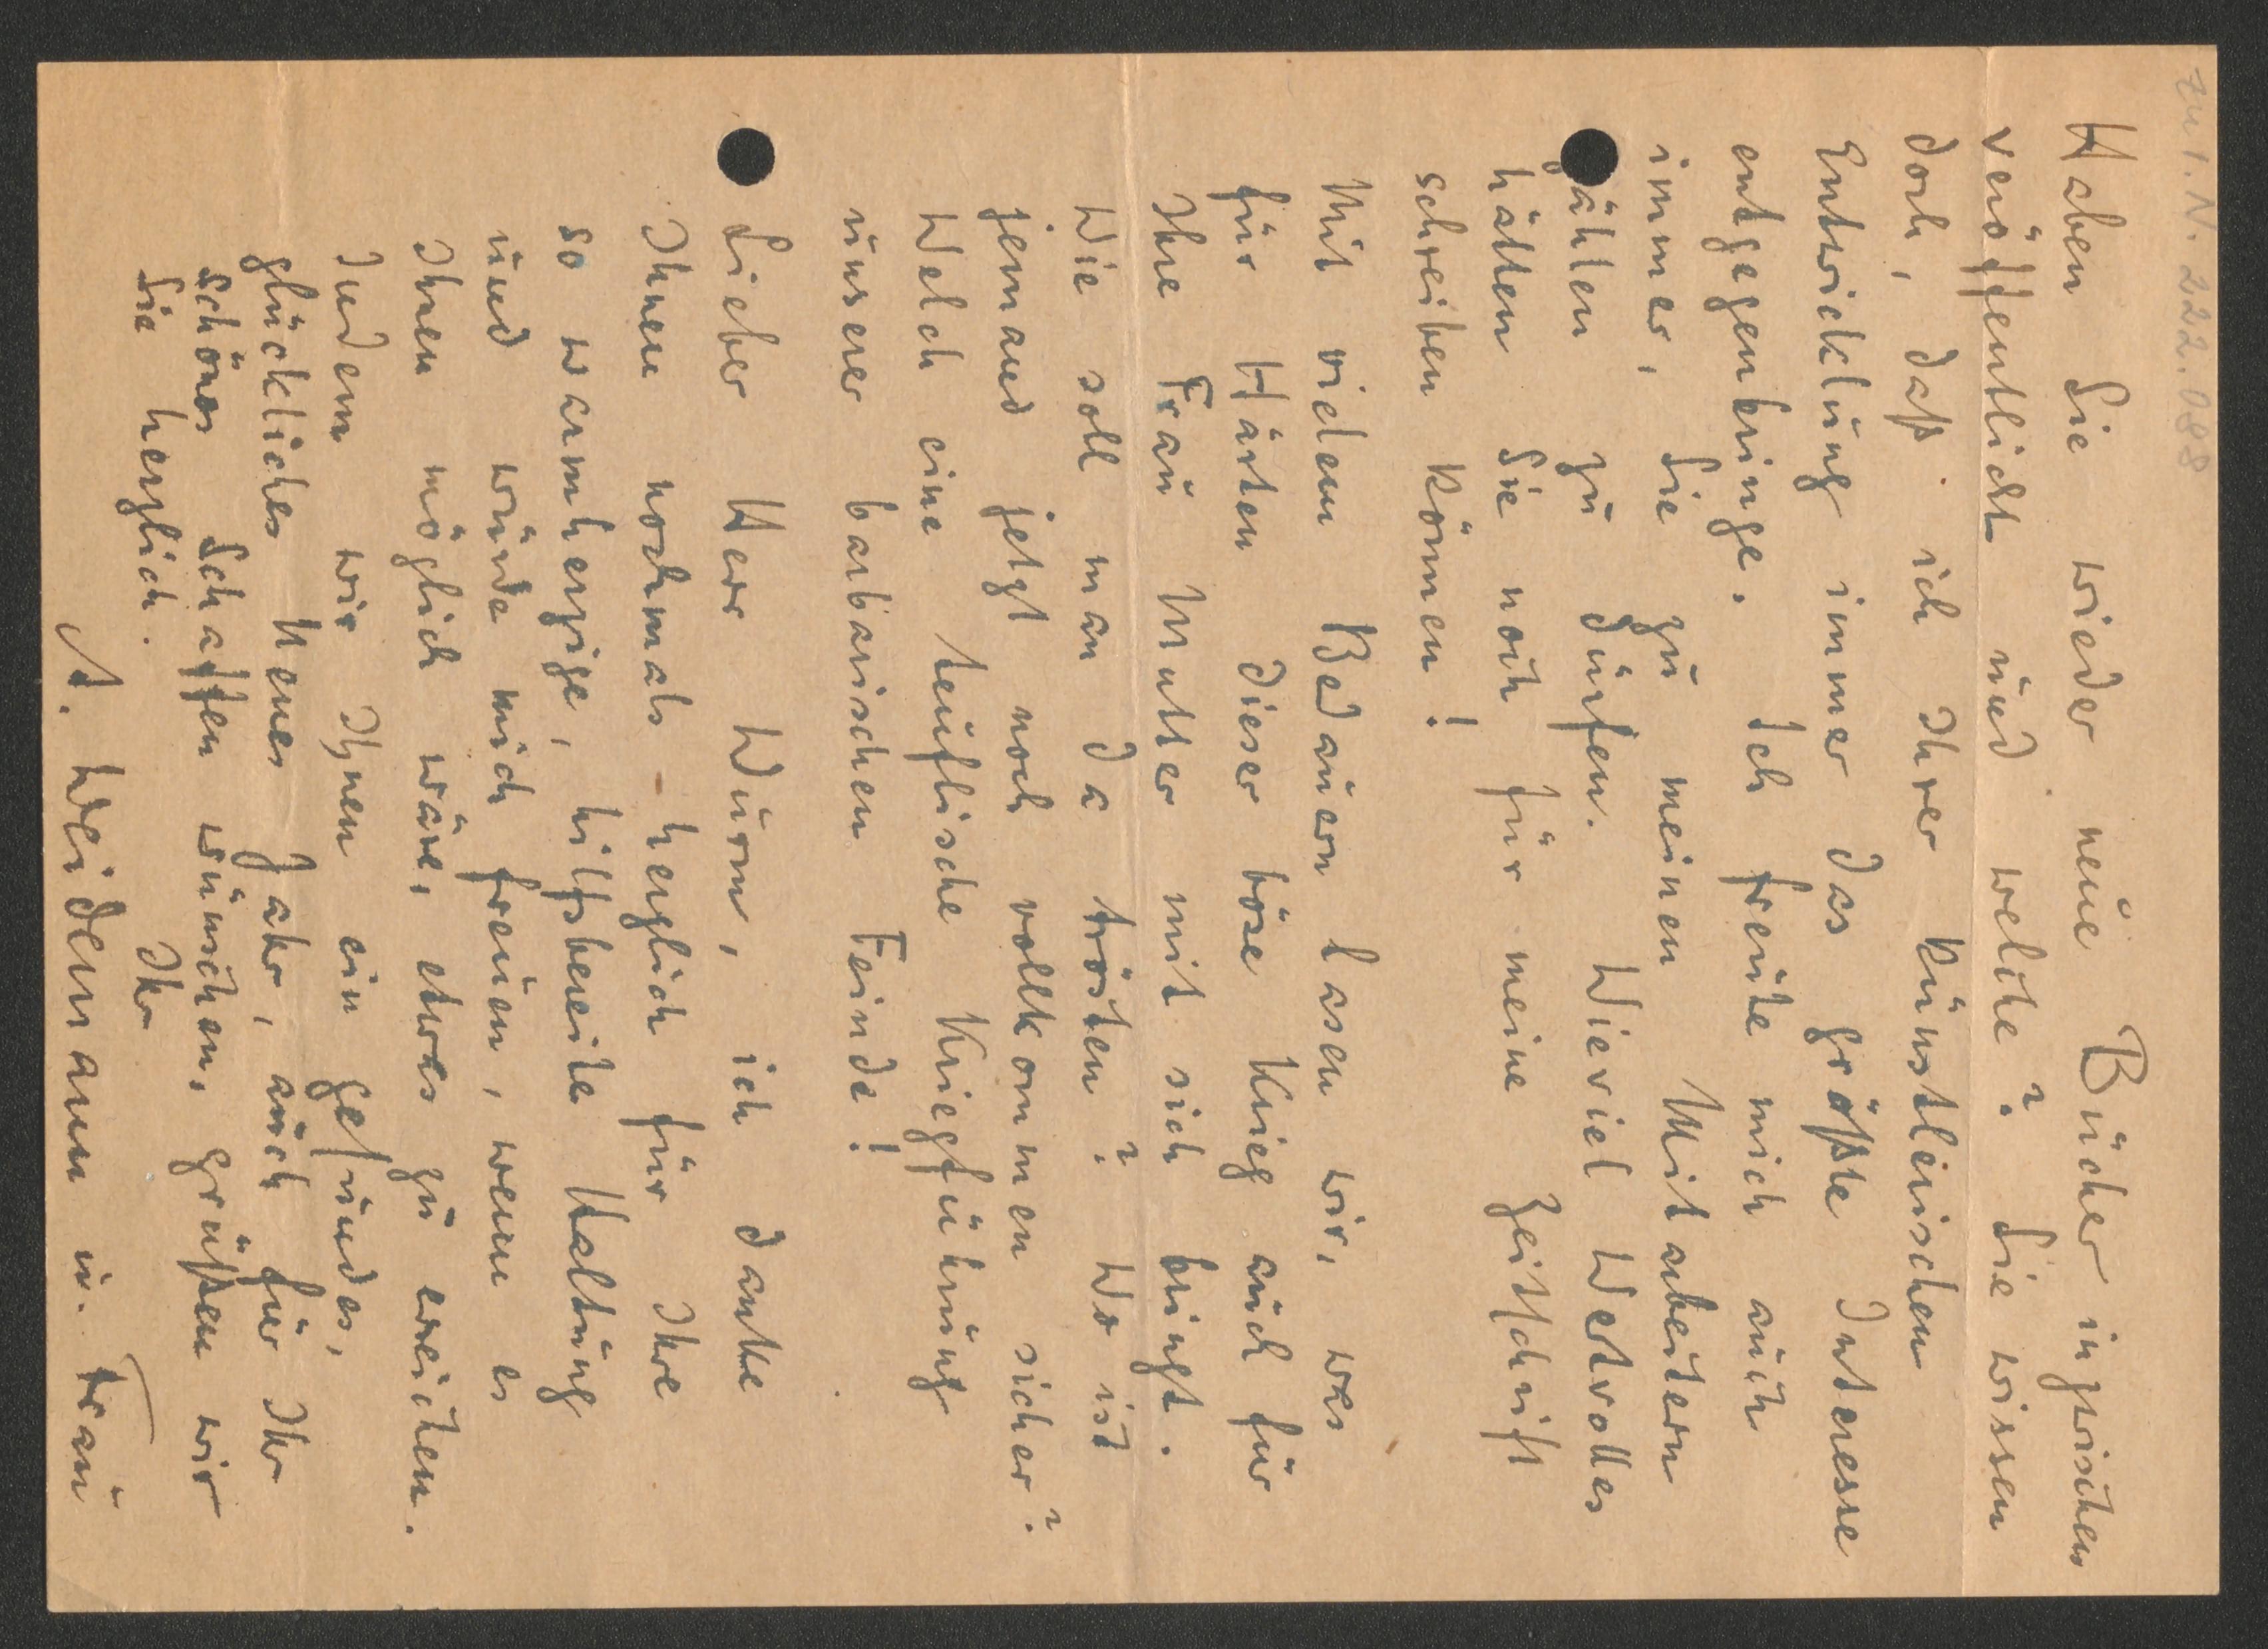 zu I.N. 222.088
Haben Sie wieder neue Bücher inzwischen
veröffentlicht und welche? Sie wissen
doch, daß ich Ihrer künstlerischen
Entwicklung immer das größte Interesse
entgegenbringe. Ich freute mich auch
immer, Sie zu meinen Mitarbeitern
zählen zu dürfen. Wieviel Wertvolles
hätten Sie noch für meine Zeitschrift
schreiben können!
Mit vielem Bedauern lasen wir, was
für Härten dieser böse Krieg auch für
Ihre Frau Mutter mit sich bringt.
Wie soll man da trösten? Wo ist
jemand jetzt noch vollkommen sicher?
Welch eine teuflische Kriegführung
unserer barbarischen Feinde!
Lieber Herr Wurm, ich danke
Ihnen nochmals herzlich für Ihre
so warmherzige, hilfsbereite Haltung
und würde mich freuen, wenn es
Ihnen möglich wäre, etwas zu erreichen.
Indem wir Ihnen ein gesundes,
glückliches neues Jahr, auch für Ihr
schönes Schaffen wünschen, grüßen wir
Sie herzlich.
Ihr
A. Weidemann u. Frau